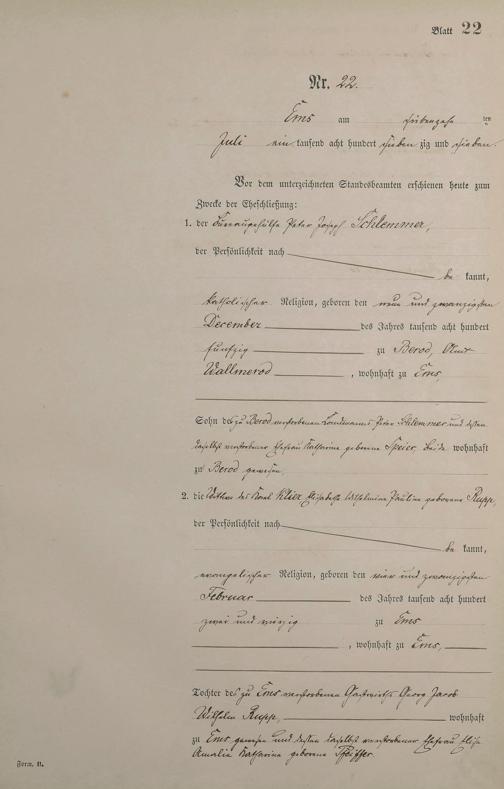 Blatt 22
Nr. 22.
Ems am siebenzehn ten
Juli ein tausend acht hundert sieben zig und sieben.
Vor dem unterzeichneten Standesbeamten erschienen heute zum
Zwecke der Eheschließung:
1. der Bureaugehülfe Peter Joseph Schlemmer,
der Persönlichkeit nach
be kannt,
katholischer Religion, geboren den neun und zwanzigsten
December des Jahres tausend acht hundert
funfzig zu Berod, Amt
Wallmerod, wohnhaft zu Ems,
Sohn des zu Berod verstorbenen Landmanns Peter Schlemmer und dessen
daselbst verstorbener Ehefrau Katharina geborene Speier, beide wohnhaft
zu Berod gewesen.
2. die Wittwe des Karl Klier, Elisabethe Wilhelmine Pauline geborene Rupp,
der Persönlichkeit nach
be kannt,
evangelischer Religion, geboren den vier und zwanzigsten
Februar des Jahres tausend acht hundert
zwei und vierzig zu Ems
, wohnhaft zu Ems,
Tochter des zu Ems verstorbenen Gastwirths Georg Jacob
Wilhelm Rupp, wohnhaft
zu Ems gewesen und dessen daselbst verstorbener Ehefrau Elise
Amalie Katharine geborene Pfeiffer.
Form. B.